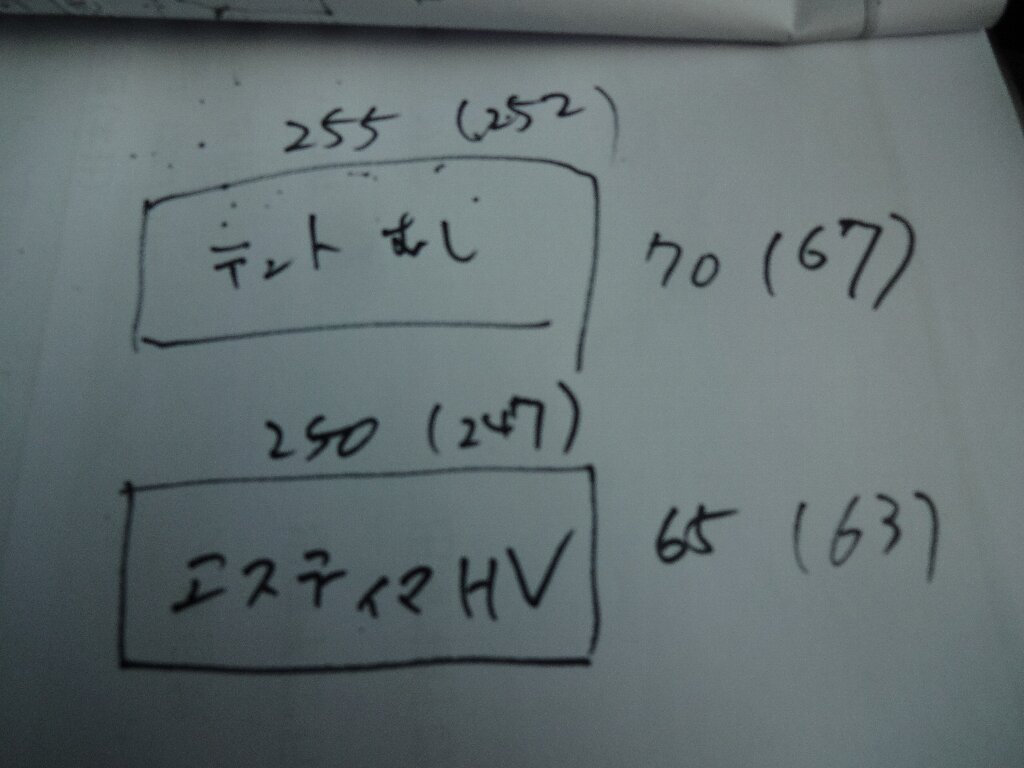 255 (252)
テントむし
70 (67)
250 (247)
エスティマHV
65 (63)